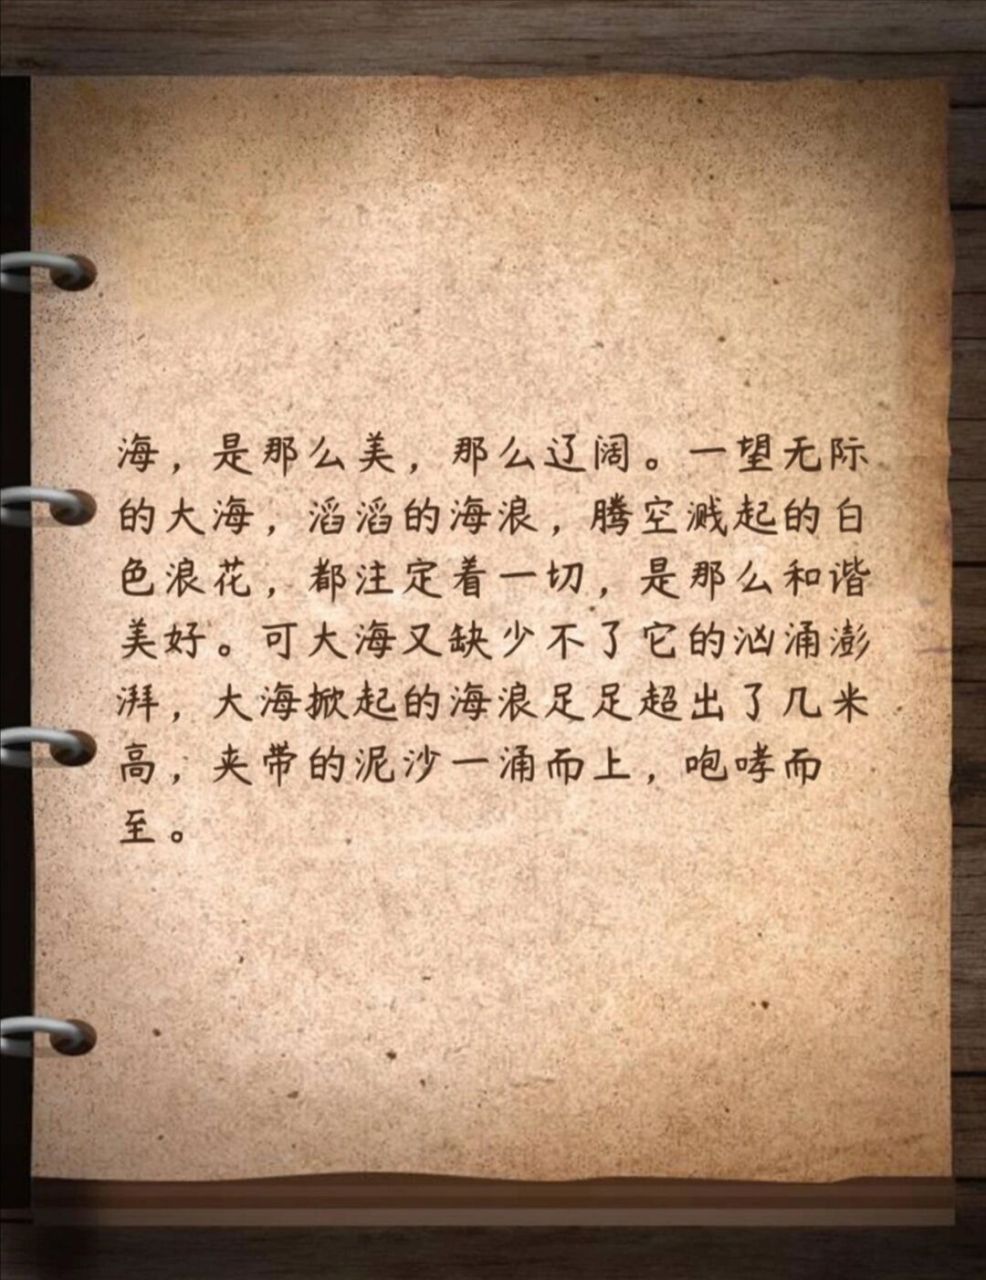 海，是那么美，那么辽阔。一望无际
的大海，滔滔的海浪，腾空溅起的白
色浪花，都注定着一切，是那么和谐
美好。可大海又缺少不了它的汹涌澎
湃，大海掀起的海浪足足超出了几米
高，夹带的泥沙一涌而上，咆哮而
至。